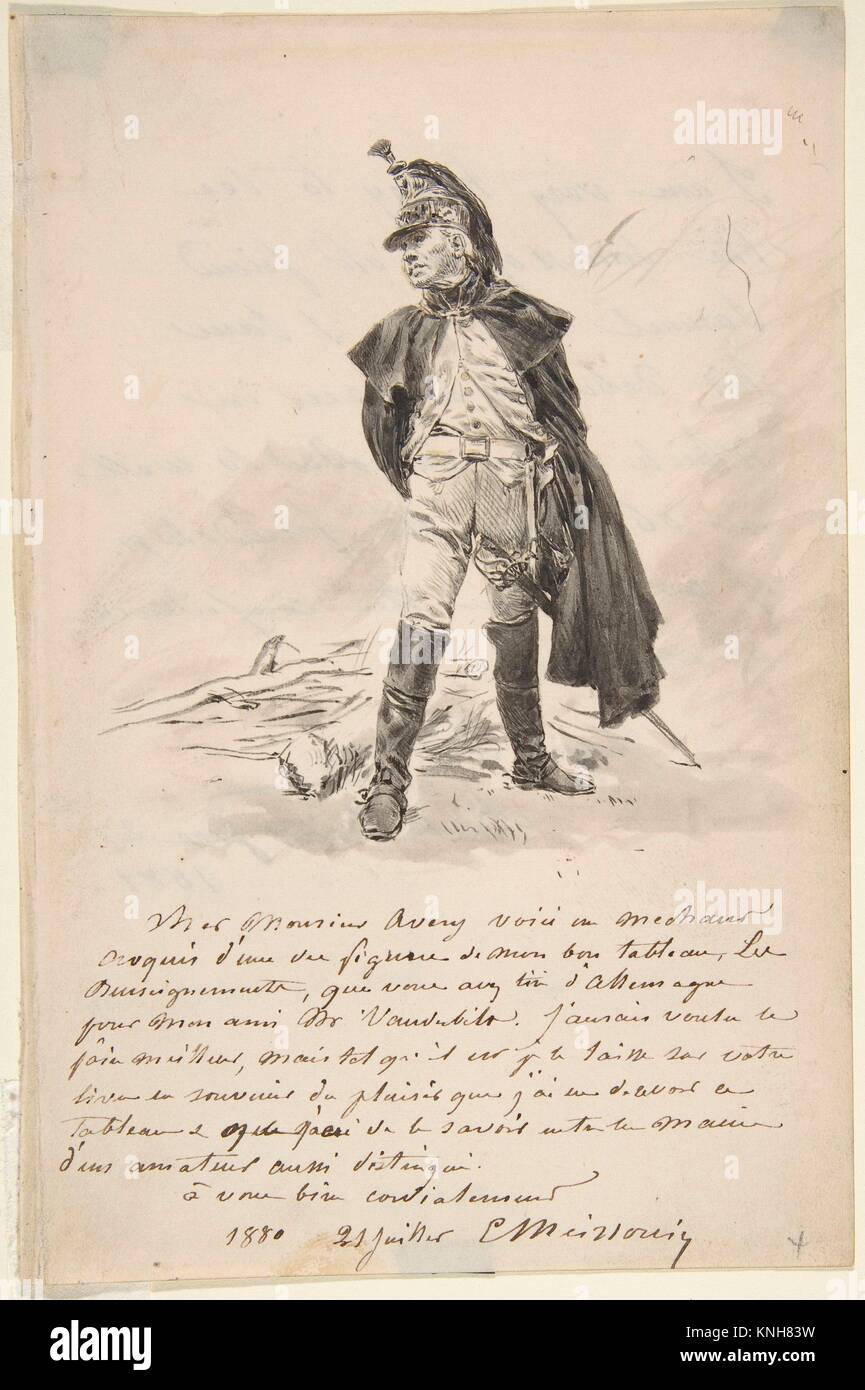 Cher Monsieur Avery voici un mechant
croquis d'une des figures de mon bon tableau, Les
Renseignements, que vous avez tiré d'Allemagne
pour mon ami Mr Vanderbilt. j'aurais voulu le
faire meilleur, mais tel qu'il est je le laisse sur votre
livre en souvenir du plaisir que j'ai eu de avoir ce
Tableau & que j'ai de le savoir entre les mains
d'un amateur aussi distingué.
à vous bien cordialement
1880 21 Juillet EMeissonier
4
alamy
alamy
Image ID: KNH83W
www.alamy.com